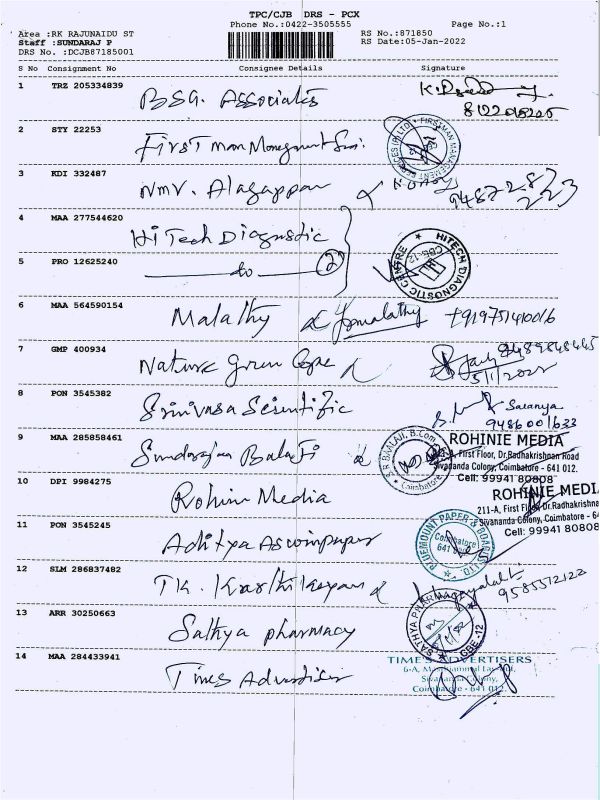 TPC/CJB DRS - PCX
Phone No.:0422-3505555 Page No.:1
Area :RK RAJUNAIDU ST RS No.:871850
Staff :SUNDARAJ P RS Date:05-Jan-2022
DRS No. :DCJB87185001
S No Consignment No Consignee Details Signature
1 TRZ 205334839 BSG. Associates
2 STY 22253 First man
3 KDI 332487 Alagappan
4 MAA 277544620 Hi Tech Diagnostic
HITECH DIAGNOSTIC CENTRE
CBE-12
5 PRO 12625240 do 2
6 MAA 564590154 Malathy malathy +919751410016
7 GMP 400934 Nature green
5/1/2022
8 PON 3545382 Srinivasa Scientific Saranya
9486001633
9 MAA 285858461 Sundarajan Balaji
Coimbatore
ROHINIE MEDIA
First Floor, Dr.Radhakrishnan Road
Sivananda Colony, Coimbatore - 641 012.
Cell: 99941 80808
10 DPI 9984275 Rohini Media
ROHINIE MEDIA
211-A, First Floor, Dr.Radhakrishna
Sivananda Colony, Coimbatore - 64
Cell: 99941 80808
11 PON 3545245 Aditya
Coimbatore
12 SLM 286837482 TK. Karthikeyan
9585512122
13 ARR 30250663 Sathya pharmacy
SATHYA PHARMACY
CBE-12
14 MAA 284433941 Times Advertiser
TIME'S ADVERTISERS
Sivananda Colony,
Coimbatore - 641 012.